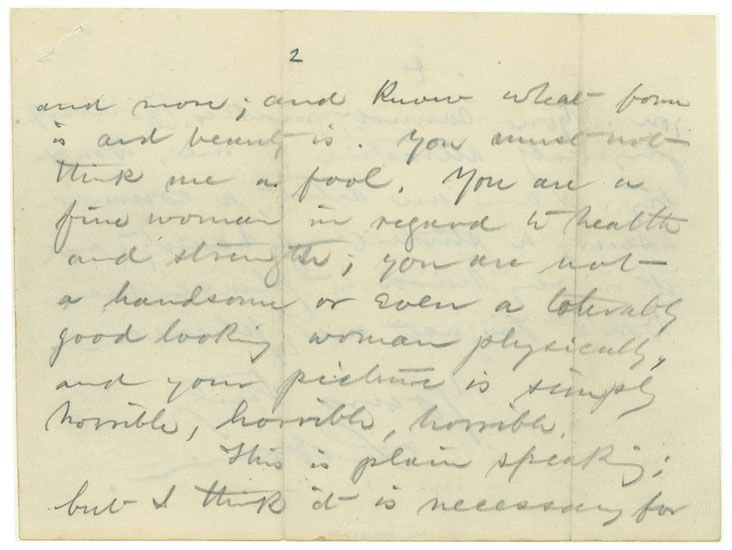 2
and more; and know what form
is and beauty is. You must not
think me a fool. You are a
fine woman in regard to health
and strength; you are not
a handsome or even a tolerably
good looking woman physically,
and your picture is simply
horrible, horrible, horrible.
This is plain speaking;
but I think it is necessary for